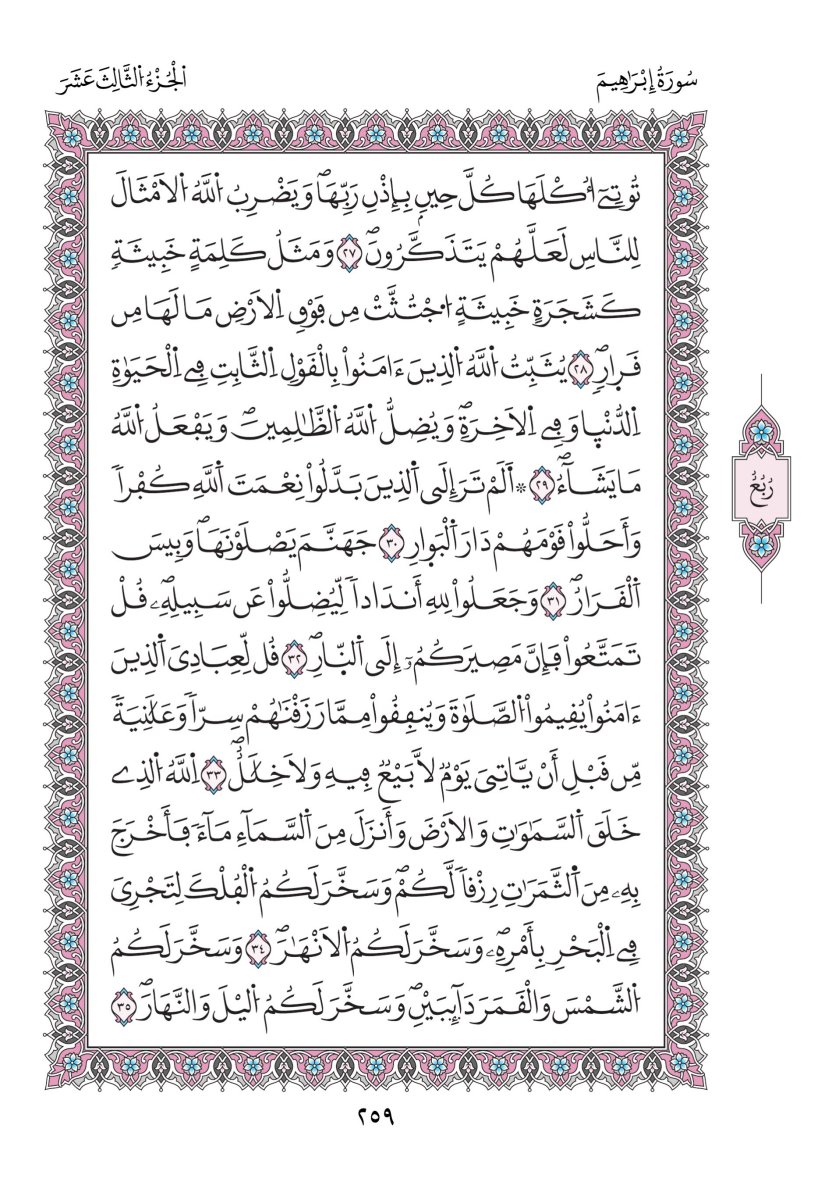 سُورَةُ إِبْرَاهِيمَ
اَلْجُزْءُ اَلثَّالِثَ عَشَرَ
تُوتِےٓ أُكْلَهَا كُلَّ حِينِۢ بِإِذْنِ رَبِّهَاۖ وَيَضْرِبُ اُللَّهُ اُلَامْثَالَ
لِلنَّاسِ لَعَلَّهُمْ يَتَذَكَّرُونَۖ ٢٧ وَمَثَلُ كَلِمَةٍ خَبِيثَةٖ
كَشَجَرَةٍ خَبِيثَةٍ اُجْتُثَّتْ مِن فَوْقِ اِلَارْضِ مَا لَهَا مِن
قَرارٖۖ ٢٨ يُثَبِّتُ اُللَّهُ اُلذِينَ ءَامَنُواْ بِالْقَوْلِ اِلثَّابِتِ فِے اِلْحَيَوٰةِ
اِلدُّنْيا وَفِے اِلَاخِرَةِۖ وَيُضِلُّ اُللَّهُ اُلظَّٰلِمِينَۖ وَيَفْعَلُ اُللَّهُ
مَا يَشَآءُۖ ٢٩ ۞ أَلَمْ تَرَ إِلَى اَلذِينَ بَدَّلُواْ نِعْمَتَ اَللَّهِ كُفْراٗ
وَأَحَلُّواْ قَوْمَهُمْ دَارَ اَلْبَوارِ ٣٠ جَهَنَّمَ يَصْلَوْنَهَاۖ وَبِيسَ
اَلْقَرَارُۖ ٣١ وَجَعَلُواْ لِلهِ أَندَاداٗ لِّيُضِلُّواْ عَن سَبِيلِهِۦۖ قُلْ
تَمَتَّعُواْ فَإِنَّ مَصِيرَكُمُۥٓ إِلَى اَلنّ۪ارِۖ ٣٢ قُل لِّعِبَادِىَ اَلذِينَ
ءَامَنُواْ يُقِيمُواْ اُلصَّلَوٰةَ وَيُنفِقُواْ مِمَّا رَزَقْنَٰهُمْ سِرّاٗ وَعَلَٰنِيَةٗ
مِّن قَبْلِ أَنْ يَّاتِىَ يَوْمٞ لَّا بَيْعٞ فِيهِ وَلَا خِلَٰلٌۖ ٣٣ اِللَّهُ اُلذِے
خَلَقَ اَلسَّمَٰوَٰتِ وَالَارْضَ وَأَنزَلَ مِنَ اَلسَّمَآءِ مَآءٗ فَأَخْرَجَ
بِهِۦ مِنَ اَلثَّمَرَٰتِ رِزْقاٗ لَّكُمْۖ وَسَخَّرَ لَكُمُ اُلْفُلْكَ لِتَجْرِىَ
فِے اِلْبَحْرِ بِأَمْرِهِۦۖ وَسَخَّرَ لَكُمُ اُلَانْهَٰرَۖ ٣٤ وَسَخَّرَ لَكُمُ
اُلشَّمْسَ وَالْقَمَرَ دَآئِبَيْنِۖ وَسَخَّرَ لَكُمُ اُليْلَ وَالنَّهَارَۖ ٣٥
رُبُعُ
٢٥٩